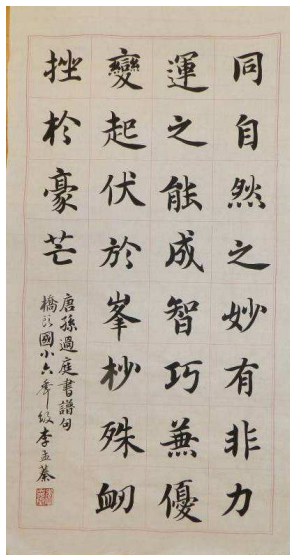 同自然之妙有非力
運之能成智巧兼優
變起伏於峯杪殊衂
挫於豪芒
唐孫過庭書譜句
橋頭國小六年級李孟蓁